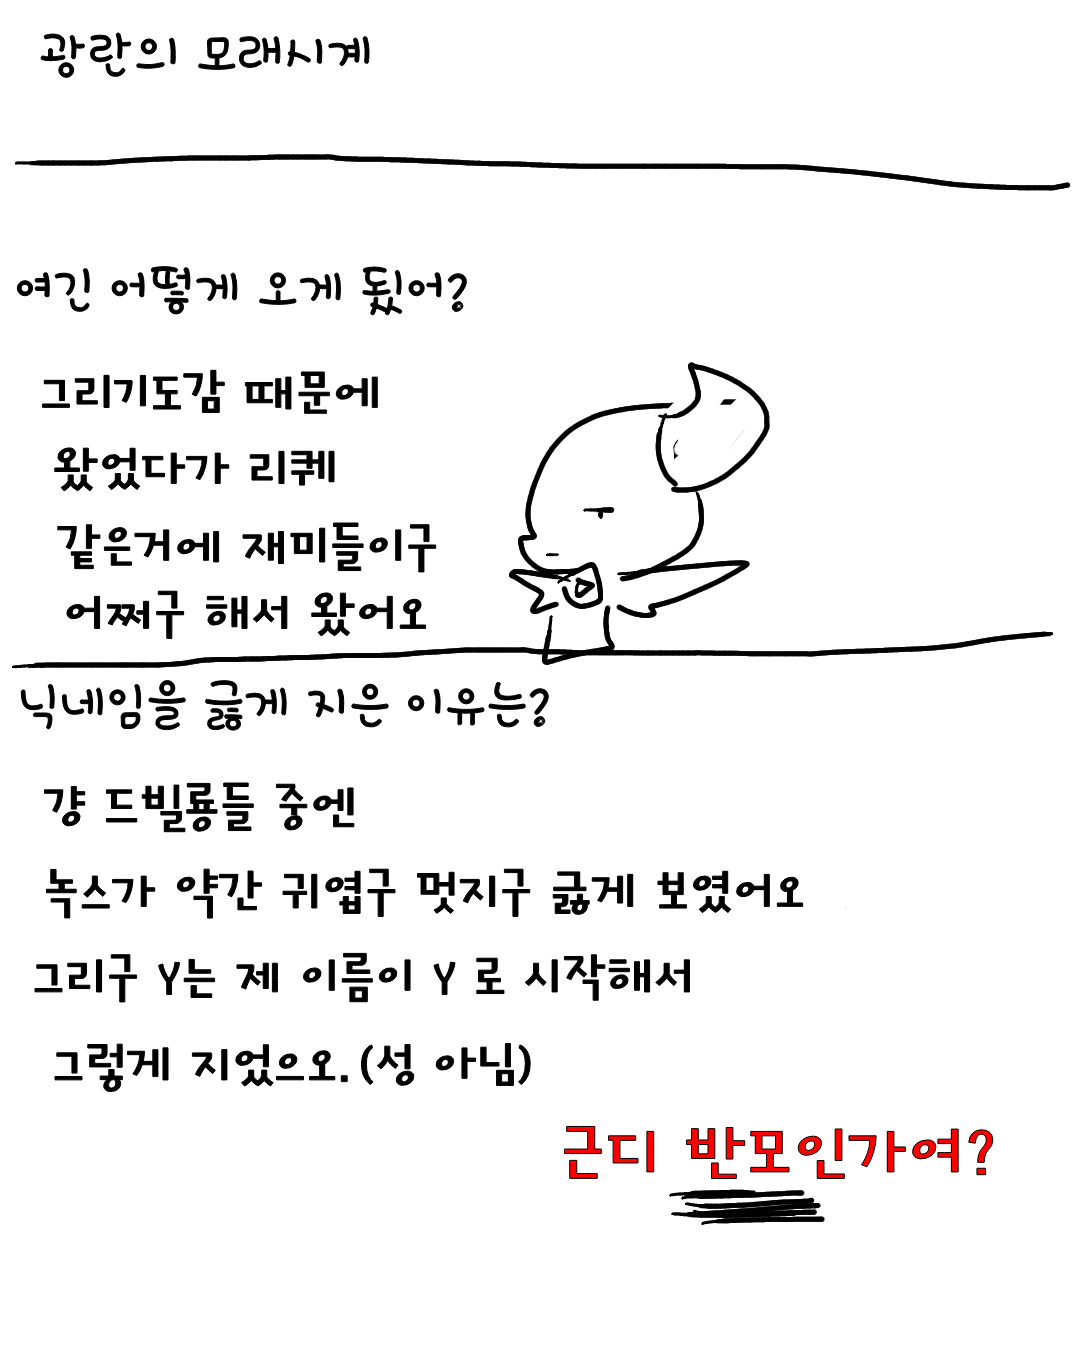 광란의 모래시계
여긴 어떻게 오게 됬어?
그리기도감 때문에
왔었다가 리퀘
같은거에 재미들이구
어쩌구 해서 왔어오
닉네임을 긇게 지은 이유는?
걍 드빌룡들 중에
녹스가 약간 귀엽구 멋지구 긇게 보였어오
그리구 Y는 제 이름이 Y 로 시작해서
그렇게 지었으오.(성 아님)
근디 반모인가여?